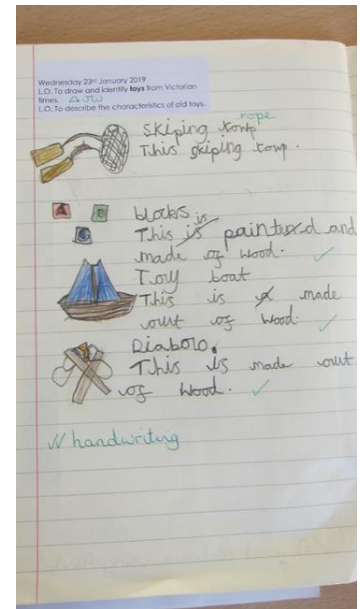 Wednesday 23rd January 2019
L.O. To draw and identify toys from Victorian
times. JW
L.O. To describe the characteristics of old toys.
rope
Skiping
This skiping
A
blocks is
This is painted and
made of wood. ✓
Toy boat
This is made
out of wood. ✓
Diabolo.
This is made out
of wood. ✓
handwriting